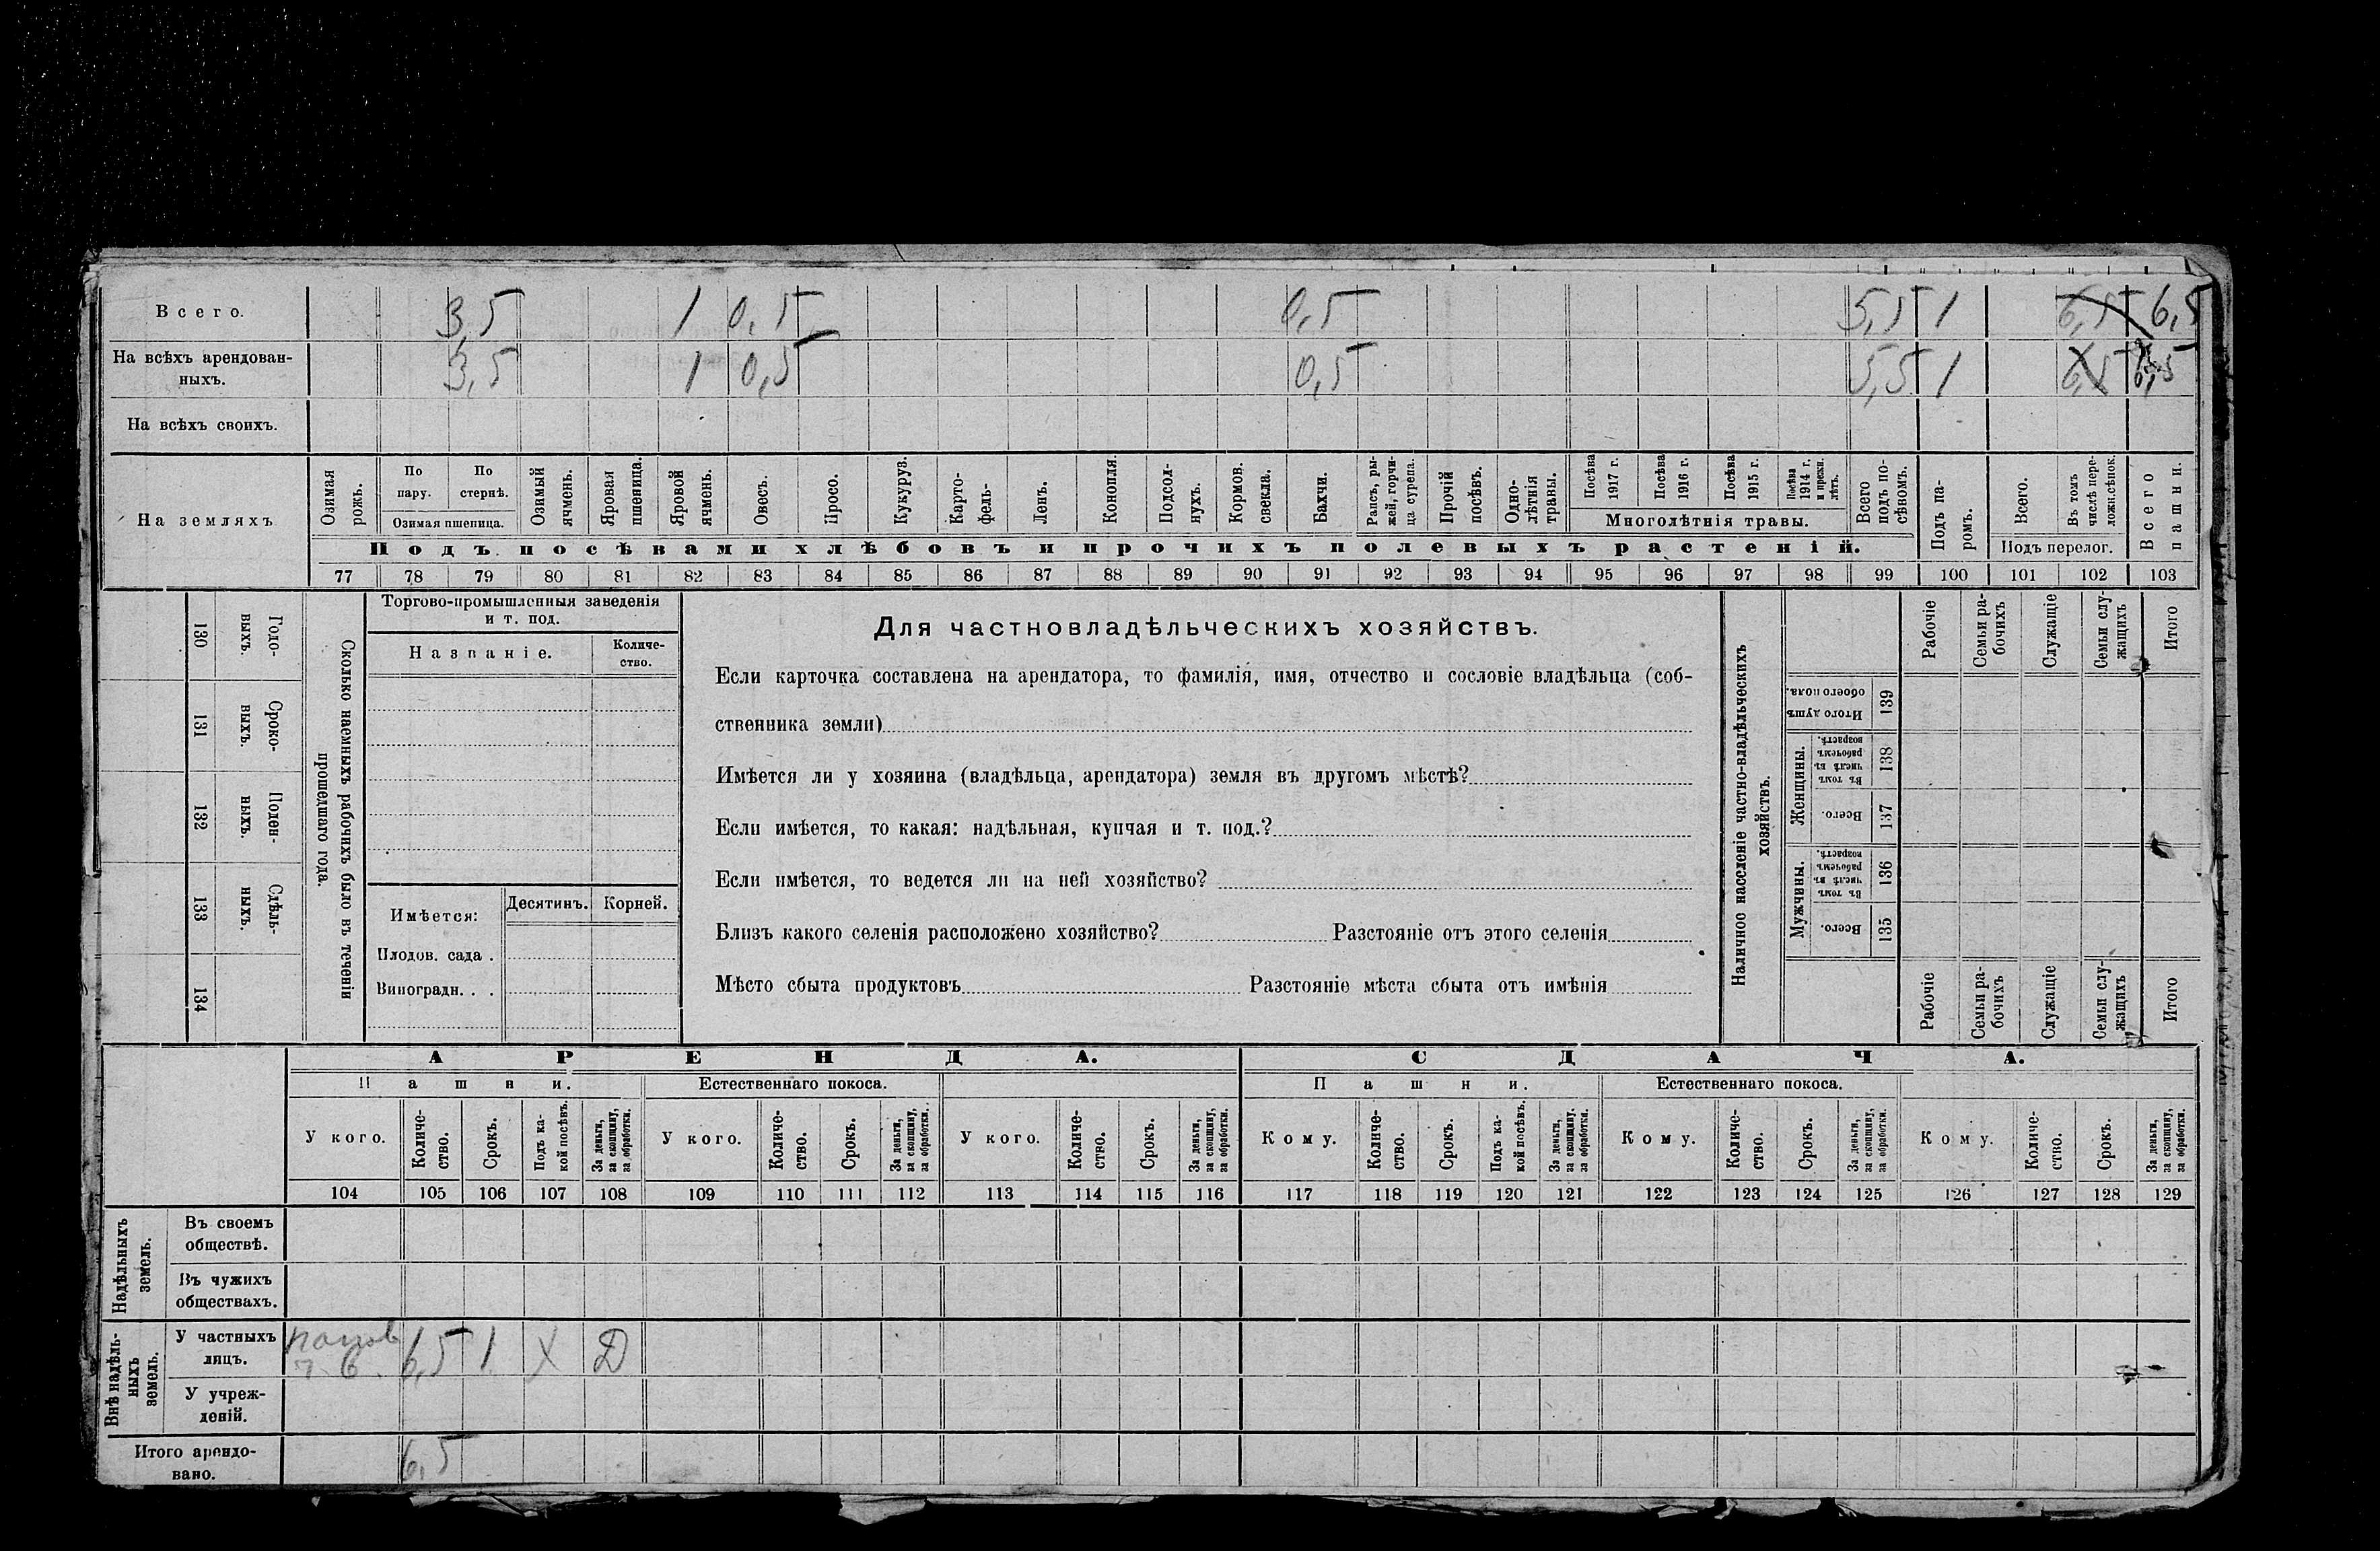 Всего. 3,5 1 0,5 0,5 5,5 1 6,5 6,5
На всѣхъ арендован-
ныхъ. 3,5 1 0,5 0,5 5,5 1 6,5 6,5
На всѣхъ своихъ.
На земляхъ
Озимая
рожь.
По
пару.
По
стернѣ.
Озимая пшеница.
Озимый
ячмень.
Яровая
пшеница.
Яровой
ячмень.
Овесъ.
Просо.
Кукуруз.
Карто-
фель-
Ленъ.
Конопля.
Подсол-
нухъ.
Кормов.
свекла.
Бахчи.
Рапсъ, ры-
жей, горчи-
ца сурепа.
Прочій
посѣвъ.
Одно-
лѣтнія
травы.
Посѣва
1917 г.
Посѣва
1916 г.
Посѣва
1915 г.
Посѣва
1914 г.
и прежн.
лѣтъ.
Многолѣтнія травы.
Всего
подъ по-
сѣвомъ.
Подъ па-
ромъ.
Всего.
Въ томъ
числѣ пере-
ложн.сѣнок.
Подъ перелог.
Всего
пашни.
Подъ посѣвами хлѣбовъ и прочихъ полевыхъ растеній.
77 78 79 80 81 82 83 84 85 86 87 88 89 90 91 92 93 94 95 96 97 98 99 100 101 102 103
130
Годо-
выхъ.
131
Сроко-
выхъ.
132
Поден-
ныхъ.
133
Сдѣль-
ныхъ.
134
Сколько наемныхъ рабочихъ было въ теченіи
прошедшаго года.
Торгово-промышленныя заведенія
и т. под.
Названіе.
Количе-
ство.
Имѣется:
Десятинъ. Корней.
Плодов. сада .
Виноградн. . .
Для частновладѣльческихъ хозяйствъ.
Если карточка составлена на арендатора, то фамилія, имя, отчество и сословіе владѣльца (соб-
ственника земли)
Имѣется ли у хозяина (владѣльца, арендатора) земля въ другомъ мѣстѣ?
Если имѣется, то какая: надѣльная, купчая и т. под.?
Если имѣется, то ведется ли на ней хозяйство?
Близъ какого селенія расположено хозяйство? Разстояніе отъ этого селенія
Мѣсто сбыта продуктовъ Разстояніе мѣста сбыта отъ имѣнія
Наличное населеніе частно-владѣльческихъ
хозяйствъ.
Рабочіе
Семьи ра-
бочихъ
Служащіе
Семьи слу-
жащихъ
Итого
Итого душъ
обоего пола.
139
Женщины.
Въ томъ
числѣ въ
рабочемъ
возрастѣ.
138
Всего.
137
Мужчины.
Въ томъ
числѣ въ
рабочемъ
возрастѣ.
136
Всего.
135
Рабочіе
Семьи ра-
бочихъ
Служащіе
Семьи слу-
жащихъ
Итого
АРЕНДА. СДАЧА.
Пашни. Естественнаго покоса. Пашни. Естественнаго покоса.
У кого.
Количе-
ство.
Срокъ.
Подъ ка-
кой посѣвъ.
За деньги,
за скопщину,
за обработки.
У кого.
Количе-
ство.
Срокъ.
За деньги,
за скопщину,
за обработки.
У кого.
Количе-
ство.
Срокъ.
За деньги,
за скопщину,
за обработки.
Кому.
Количе-
ство.
Срокъ.
Подъ ка-
кой посѣвъ.
За деньги,
за скопщину,
за обработки.
Кому.
Количе-
ство.
Срокъ.
За деньги,
за скопщину,
за обработки.
Кому.
Количе-
ство.
Срокъ.
За деньги,
за скопщину,
за обработки.
104 105 106 107 108 109 110 111 112 113 114 115 116 117 118 119 120 121 122 123 124 125 126 127 128 129
Надѣльныхъ
земель.
Въ своемъ
обществѣ.
Въ чужихъ
обществахъ.
Внѣ надѣль-
ныхъ
земель.
У частныхъ
лицъ. 6,5 1 X Д
У учреж-
деній.
Итого арендо-
вано. 6,5